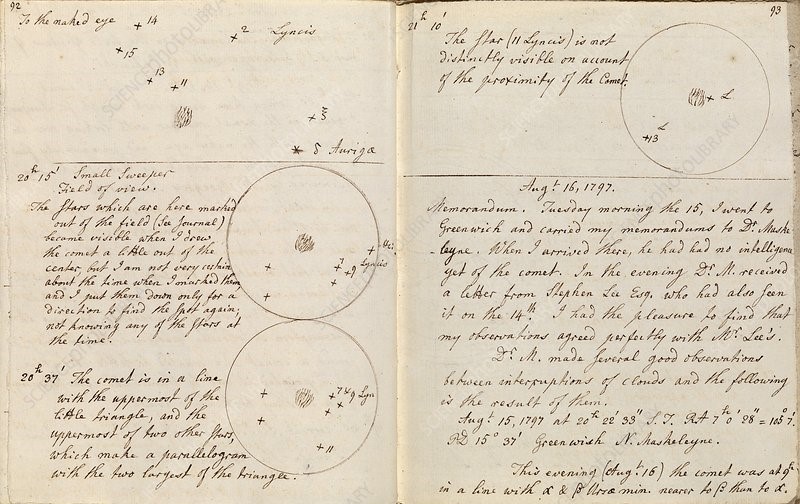 92
To the naked eye
14
2 Lyncis
15
13
11
ξ
δ Aurigæ
20h 15' Small Sweeper
Field of view.
The Stars which are here marked
out of the field (See Journal)
became visible when I drew
the comet a little out of the
center, but I am not very certain
about the time when I marked them
and I put them down only for a
direction to find the spot again;
not knowing any of the Stars at
the time.
7
9 Lyncis
20h 37' The comet is in a line
with the uppermost of the
little triangle, and the
uppermost of two other stars,
which make a parallelogram
with the two largest of the triangle.
9 Lyn
11
93
21h 10'
The Star (11 Lyncis) is not
distinctly visible on account
of the proximity of the Comet.
L
L
13
Augt 16, 1797.
Memorandum. Tuesday morning the 15, I went to
Greenwich and carried my memorandums to Dr. Maske-
-leyne. When I arrived there, he had had no intelligence
yet of the comet. In the evening Dr. M. received
a letter from Stephen Lee Esq. who had also seen
it on the 14th. I had the pleasure to find that
my observations agreed perfectly with Mr. Lee's.
Dr. M. made several good observations
between interruptions of clouds and the following
is the result of them.
Augt 15, 1797 at 20h 22' 33" S.T. RA 7h 0' 28" = 105° 7'.
PD 15° 37' Greenwish N. Maskeleyne.
This evening (Augt 16) the comet was at 9h
in a line with α & β Ursæ min. nearer to β than to α.
SCIENCEPHOTOLIBRARY